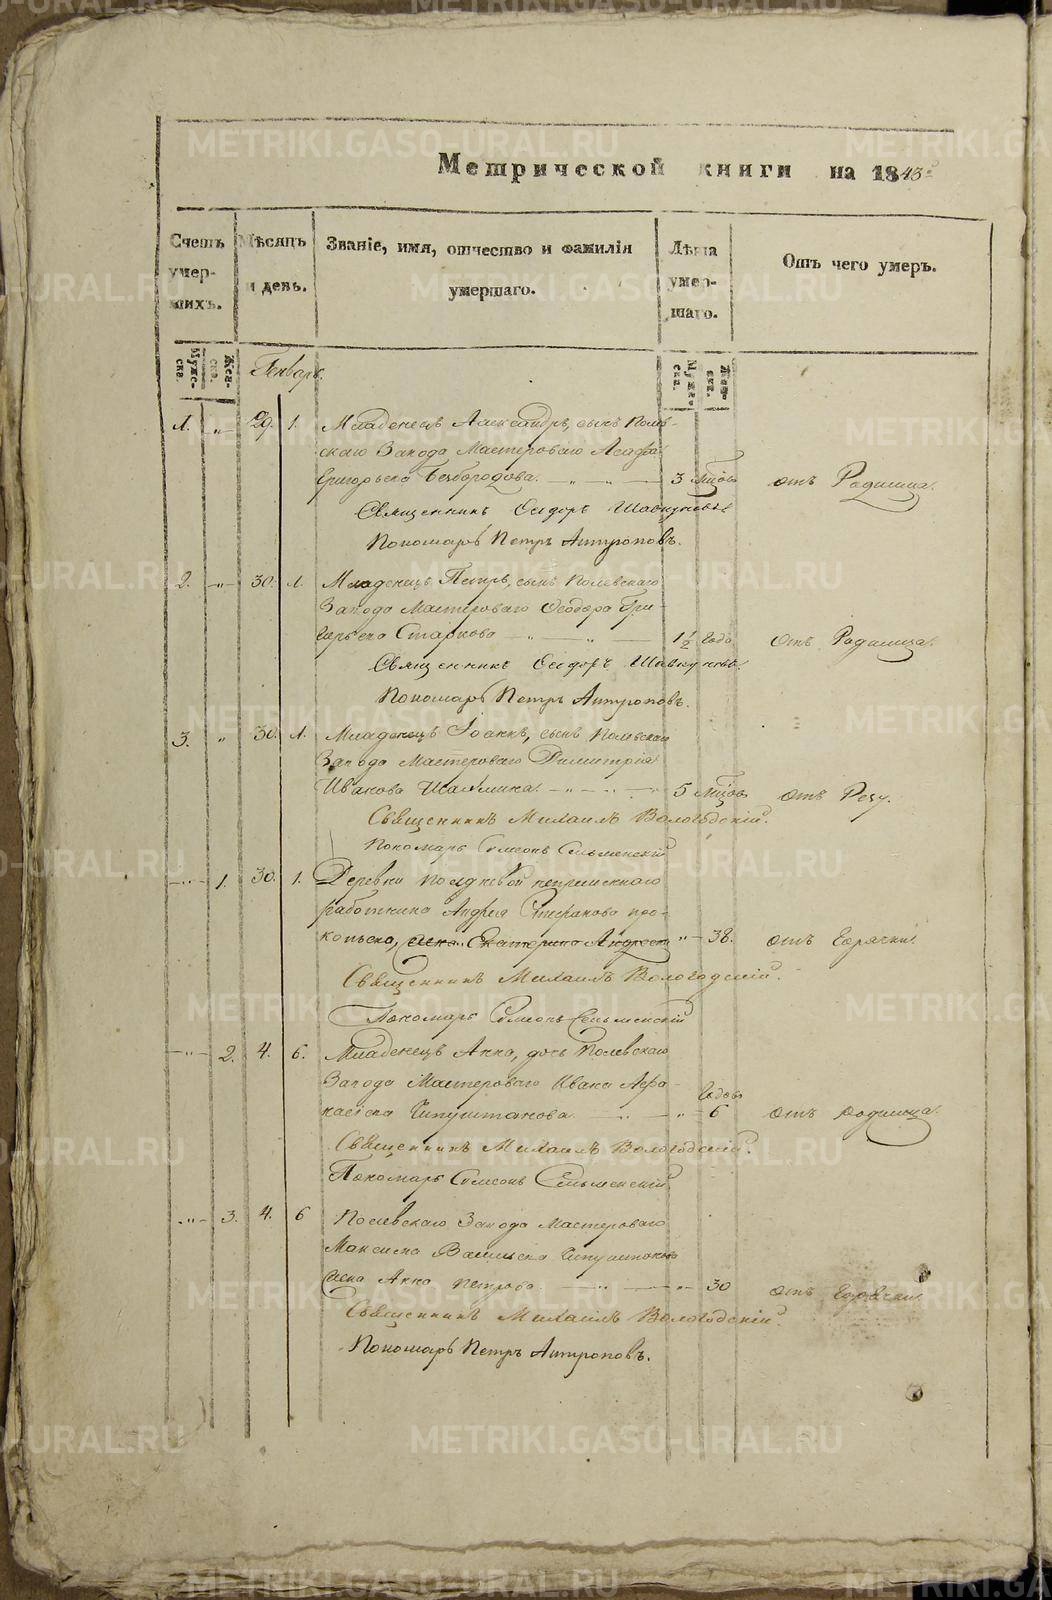 Метрической книги на 1843
Счетъ умершихъ. Мѣсяцъ и день. Званіе, имя, отчество и фамилія умершаго. Лѣта умершаго. Отъ чего умеръ.
Мужеска. Женска. Мужеска. Женска.
Генварь.
1. „ 29. 1. Младенецъ Александръ, сынъ Полев-
скаго Завода Мастероваго
Григорьева Безбородова. 3 отъ Родимца.
Священникъ Шавкуновъ
Пономарь Петръ Антроповъ.
2. „ 30. 1. Младенецъ Петръ, сынъ Полевскаго
Завода Мастероваго Ѳеодора Гри-
горьева Старкова 1 1/2 года отъ Родимца.
Священникъ Шавкуновъ.
Пономарь Петръ Антроповъ.
3. „ 30. 1. Младенецъ Іоаннъ, сынъ Полевскаго
Завода Мастероваго Димитрія
Иванова 5 отъ Резу.
Священникъ Михаилъ Вологодскій.
Пономарь Симеонъ
„ 1. 30. 1. Деревни
работника Андрея про-
копьева, жена Екатерина Андреева „ 38. отъ Горячки.
Священникъ Михаилъ Вологодскій.
Пономарь Симеонъ
„ 2. 4. 6. Младенецъ Анна, дочь Полевскаго
Завода Мастероваго Ивана Афа-
насіева Чипуштанова „ 6 Годовъ отъ родимца.
Священникъ Михаилъ Вологодскій.
Пономарь Симеонъ
„ 3. 4. 6 Полевскаго Завода Мастероваго
Максима Васильева Чипуштанова
жена Анна Петрова. „ 30 отъ Горячки.
Священникъ Михаилъ Вологодскій.
Пономарь Петръ Антроповъ.
METRIKI.GASO-URAL.RU